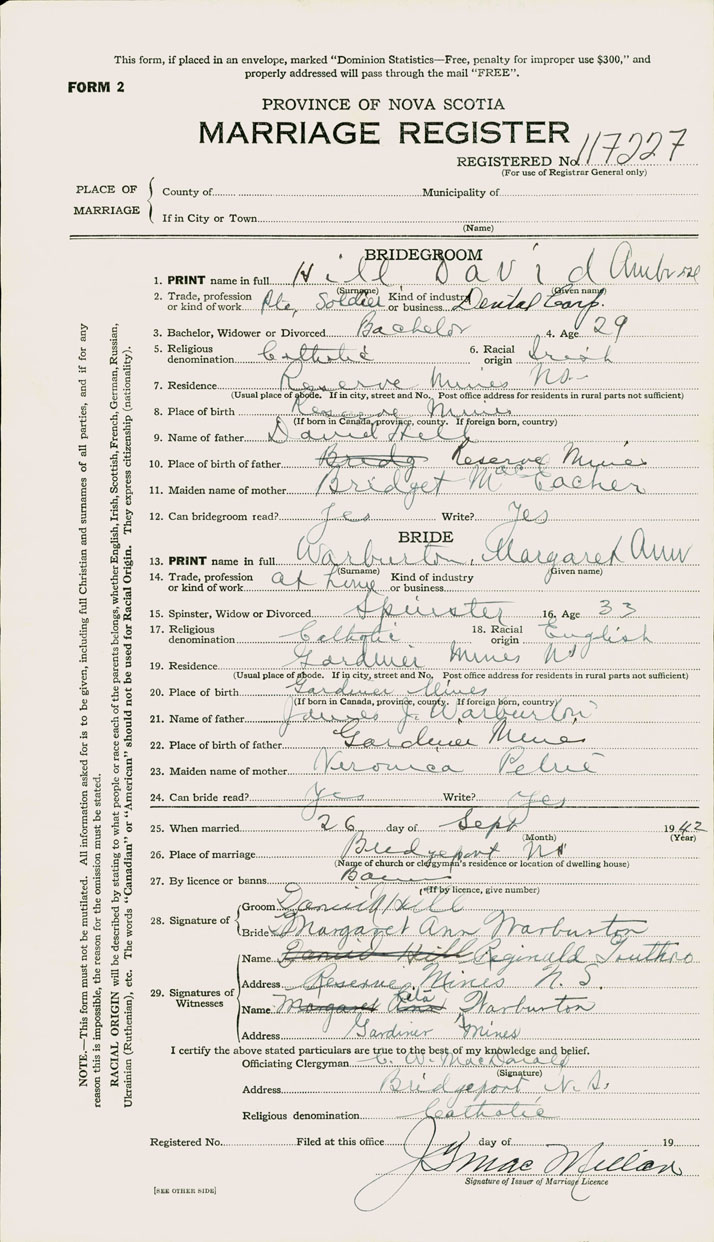 This form, if placed in an envelope, marked "Dominion Statistics—Free, penalty for improper use $300," and
properly addressed will pass through the mail "FREE".
FORM 2
PROVINCE OF NOVA SCOTIA
MARRIAGE REGISTER
REGISTERED No. 117227
(For use of Registrar General only)
PLACE OF MARRIAGE
County of Municipality of
If in City or Town
(Name)
BRIDEGROOM
1. PRINT name in full Hill David Ambrose
(Surname) (Given name)
2. Trade, profession or kind of work Pte, Soldier Kind of industry or business Dental Corp.
3. Bachelor, Widower or Divorced Bachelor 4. Age 29
5. Religious denomination Catholic 6. Racial origin Irish
7. Residence Reserve Mines NS
(Usual place of abode. If in city, street and No. Post office address for residents in rural parts not sufficient)
8. Place of birth Reserve Mines
(If born in Canada, province, county. If foreign born, country)
9. Name of father David Hill
10. Place of birth of father Bridg Reserve Mines
11. Maiden name of mother Bridget MacEacher
12. Can bridegroom read? Yes Write? Yes
BRIDE
13. PRINT name in full Warburton, Margaret Ann
(Surname) (Given name)
14. Trade, profession or kind of work at home Kind of industry or business
15. Spinster, Widow or Divorced Spinster 16. Age 33
17. Religious denomination Catholic 18. Racial origin English
19. Residence Gardiner Mines NS
(Usual place of abode. If in city, street and No. Post office address for residents in rural parts not sufficient)
20. Place of birth Gardiner Mines
(If born in Canada, province, county. If foreign born, country)
21. Name of father James J. Warburton
22. Place of birth of father Gardiner Mines
23. Maiden name of mother Veronica Petrie
24. Can bride read? Yes Write? Yes
25. When married 26 day of Sept 1942
(Month) (Year)
26. Place of marriage Bridgeport NS
(Name of church or clergyman's residence or location of dwelling house)
27. By licence or banns
(If by licence, give number)
28. Signature of
Groom Hill
Bride Margaret Ann Warburton
29. Signatures of Witnesses
Name David Hill Reginald
Address Reserve Mines N.S.
Name Margaret Ann Rita Warburton
Address Gardiner Mines
I certify the above stated particulars are true to the best of my knowledge and belief.
Officiating Clergyman C. W. MacDonald
(Signature)
Address Bridgeport N.S.
Religious denomination Catholic
Registered No. Filed at this office day of 19
MacMillan
Signature of Issuer of Marriage Licence
[SEE OTHER SIDE]
NOTE.—This form must not be mutilated. All information asked for is to be given, including full Christian and surnames of all parties, and if for any
reason this is impossible, the reason for the omission must be stated.
RACIAL ORIGIN will be described by stating to what people or race each of the parents belongs, whether English, Irish, Scottish, French, German, Russian,
Ukrainian (Ruthenian), etc. The words "Canadian" or "American" should not be used for Racial Origin. They express citizenship (nationality).